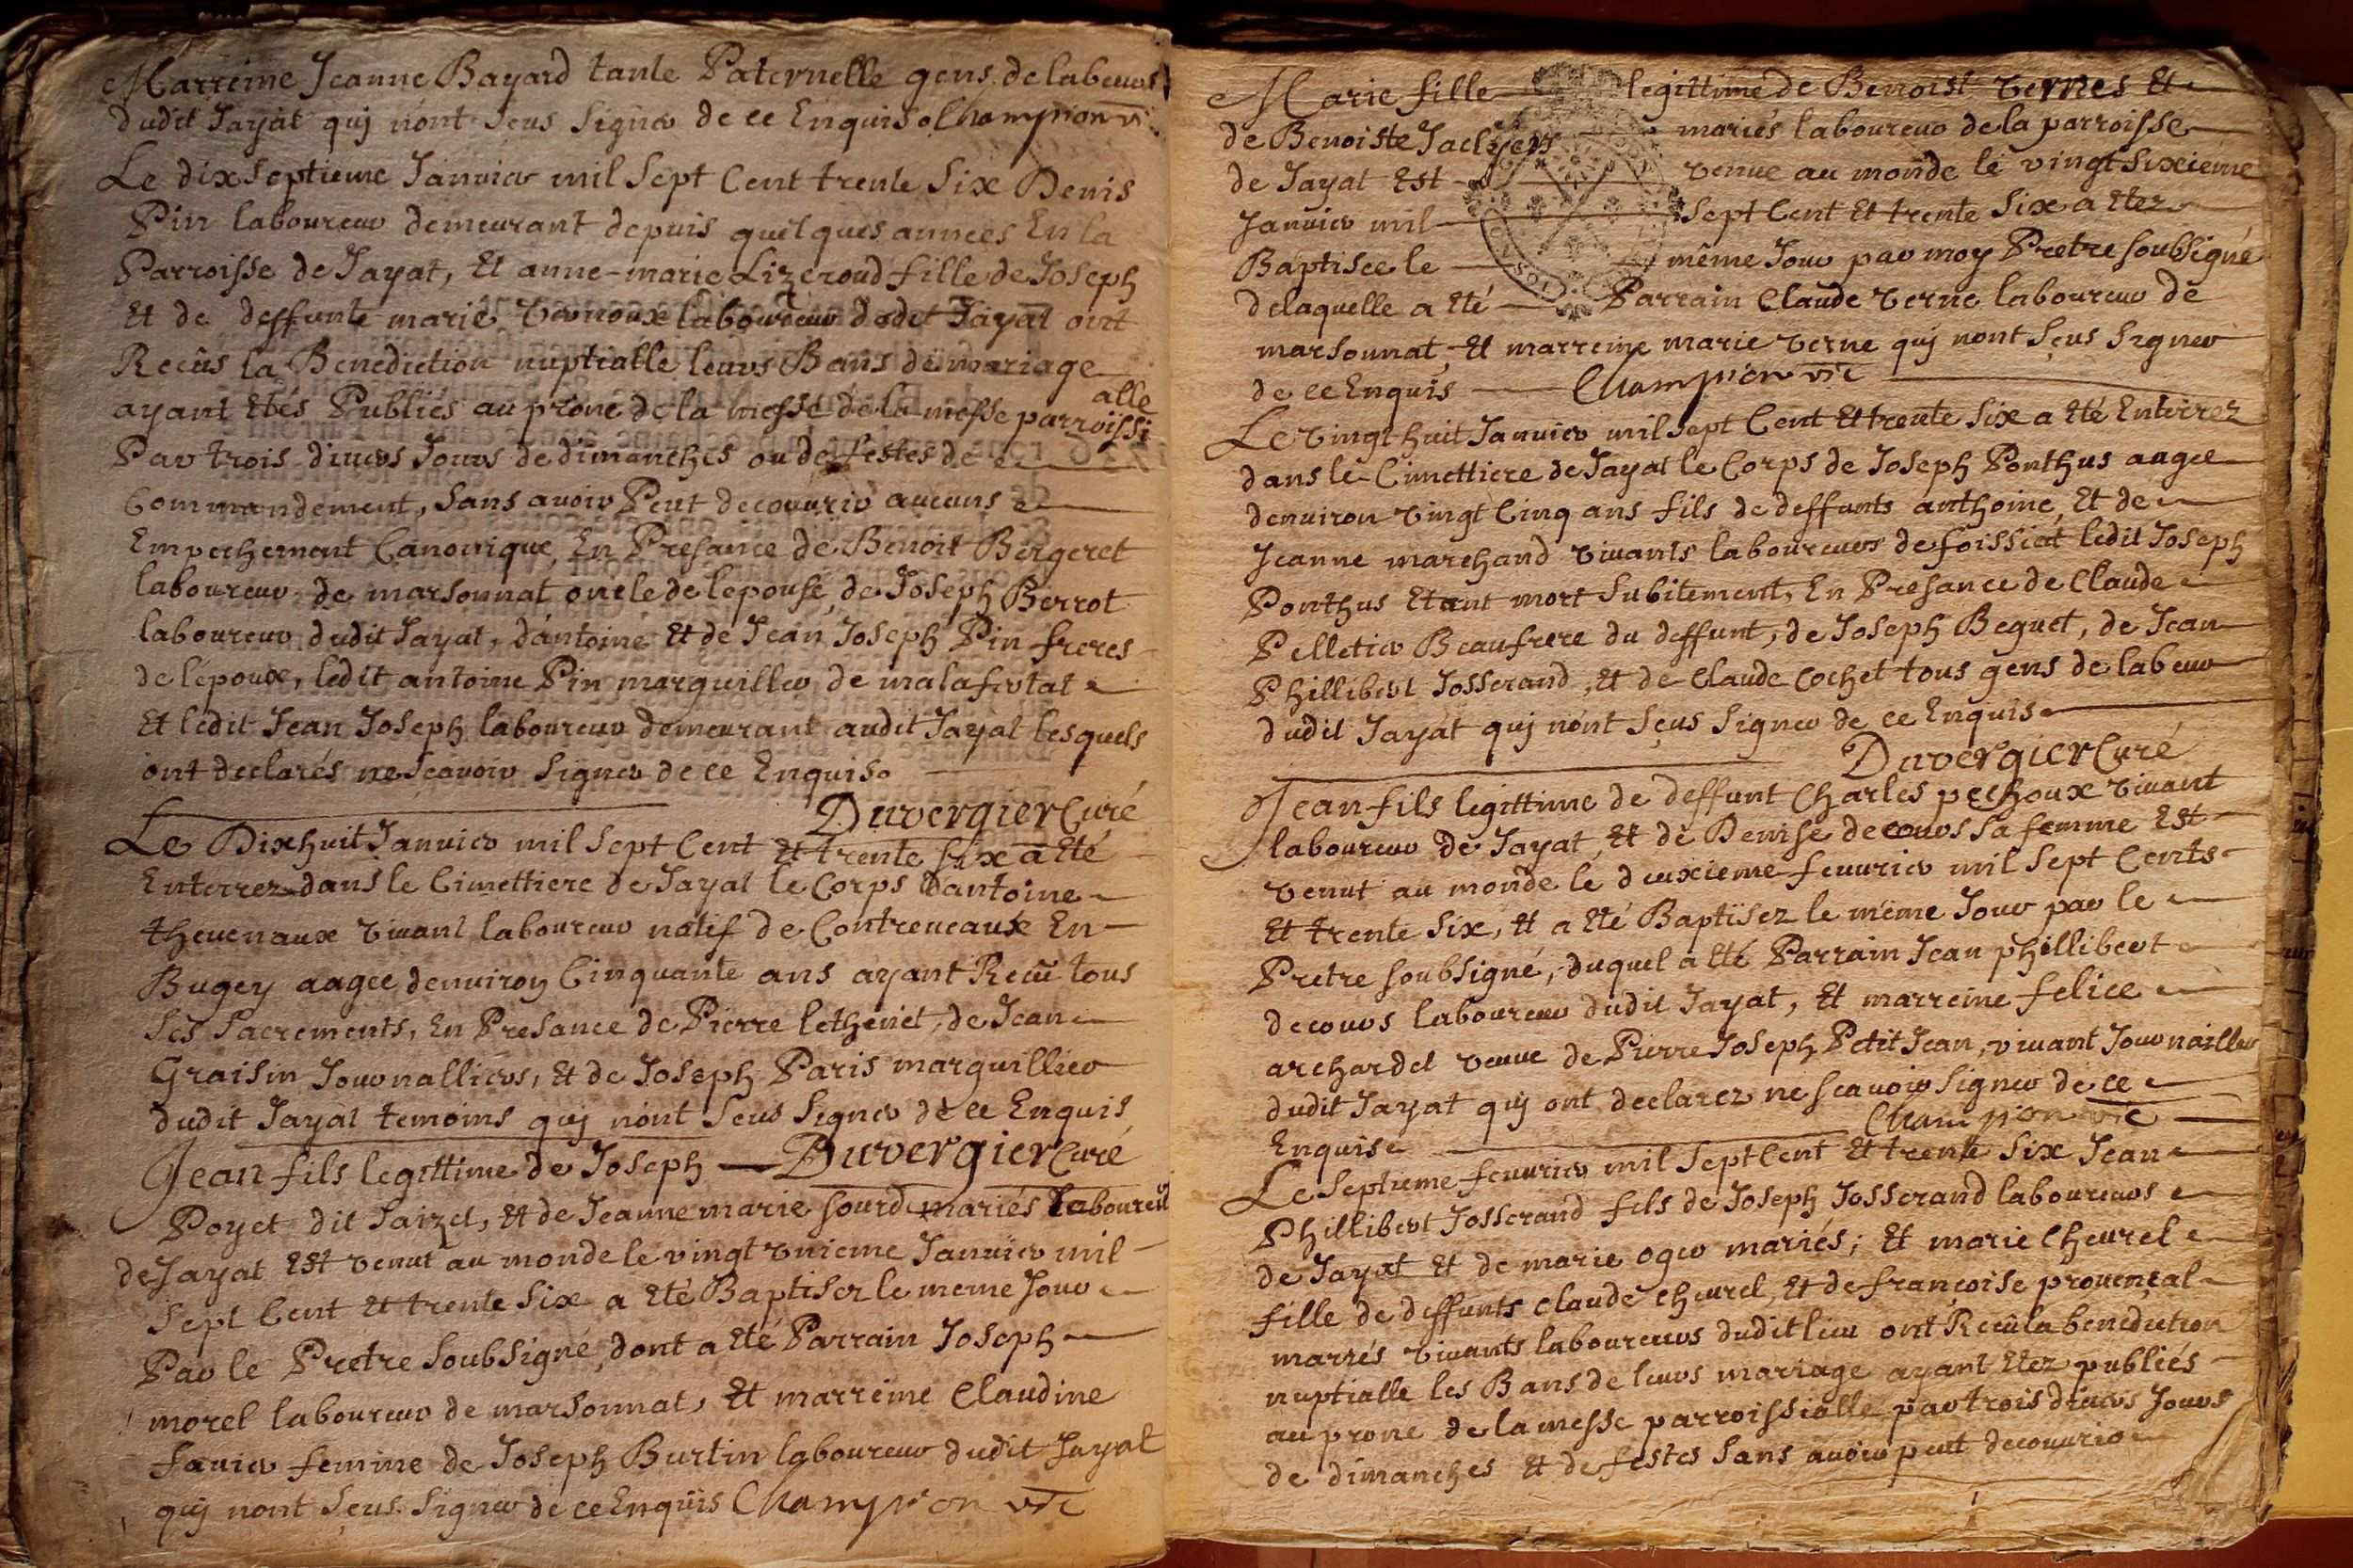 Marreine Jeanne Bayard tante Paternelle gens de labeurs
dudit Jayat quj nont seus signer de ce Enquis. Champion vic
Le dix septieme Janvier mil sept Cent trente six Denis
Pin laboureur demeurant depuis quelques années En la
Parroisse de Jayat, Et anne-marie Lizeroud fille de Joseph
Et de deffunte marie Vernoux laboureur dudit Jayat ont
Recûs la Benediction nuptialle leurs Bans de mariage
ayant Etés Publiés au prône de la messe de la messe parroissialle
Par trois divers Jours de dimanches ou de festes de
Commandement, sans avoir Peut decouvrir aucuns
Empechement Canonique, En Presance de Benoit Bergeret
laboureur de marsonnat oncle de lepouse, de Joseph Berrot
laboureur dudit Jayat, dantoine Et de Jean Joseph Pin freres
de lépoux, ledit antoine Pin marguiller de malafretat
Et ledit Jean Joseph laboureur demeurant audit Jayat lesquels
ont declarés ne scavoir signer de ce Enquis.
Duvergier Curé
Le Dixhuit Janvier mil sept Cent Et trente six a Eté
Enterrez dans le Cimettiere de Jayat le Corps dantoine
thevenaux vivant laboureur natif de Contreveaux En
Bugey aagee denviron Cinquante ans ayant Recû tous
ses sacrements, En Presance de Pierre lethenet, de Jean
Graisin Journalliers, Et de Joseph Paris marguillier
dudit Jayat temoins quj nont seus signer de ce Enquis
Jean fils legittime de Joseph Duvergier Curé
Poyet dit saizet, Et de Jeanne marie sourd mariés laboureur
de Jayat Est venut au monde le vingt unieme Janvier mil
sept Cent Et trente six a Eté Baptisez le meme Jour
Par le Pretre soubsigné, dont a Eté Parrain Joseph
morel laboureur de marsonnat, Et marreine Claudine
favier femme de Joseph Burtin laboureur dudit Jayat
quj nont seus signer de ce Enquis Champion vic
Marie fille legittime de Benoist vernes Et
de Benoiste mariés laboureur de la parroisse
de Jayat Est venue au monde le vingt sixieme
Janvier mil sept Cent Et trente six a Etez
Baptisee le même Jour par moy Pretre soubsigné
delaquelle a Eté Parrain Claude verne laboureur de
marsonnat, Et marreine marie verne quj nont seus signer
de ce Enquis Champion vic
Le vingt huit Janvier mil sept Cent Et trente six a Eté Enterrez
dans le Cimettiere de Jayat le Corps de Joseph Ponthus aagee
denviron vingt Cinq ans fils de deffunts anthoine, Et de
Jeanne marchand vivants laboureurs de foissiat ledit Joseph
Ponthus Etant mort subitement, En Presance de Claude
Pelletier Beaufrere du deffunt, de Joseph Beguet, de Jean
Phillibert Josserand, Et de Claude Cochet tous gens de labeur
dudit Jayat quj nont seus signer de ce Enquis
Duvergier Curé
Jean fils legittime de deffunt Charles pechoux vivant
laboureur de Jayat, Et de Denise decours sa femme Est
venut au monde le deuxieme fevrier mil sept Cents
Et trente six, Et a Eté Baptisez le même Jour par le
Pretre soubsigné, duquel a Eté Parrain Jean phillibert
decours laboureur dudit Jayat, Et marreine felice
archardet veuve de Pierre Joseph Petit Jean, vivant Journaillier
dudit Jayat quj ont declarez ne scavoir signer de ce
Enquis Champion vic
Le septieme fevrier mil sept Cent Et trente six Jean
Phillibert Josserand fils de Joseph Josserand laboureurs
de Jayat Et de marie oger mariés; Et marie Chevrel
fille de deffunts Claude chevrel, Et de françoise provençal
mariés vivants laboureurs dudit lieu ont Recû la benediction
nuptialle les Bans de leurs mariage ayant Etez publiés
au prone de la messe parroissialle par trois divers Jours
de dimanches Et de festes sans avoir peut decouvrir